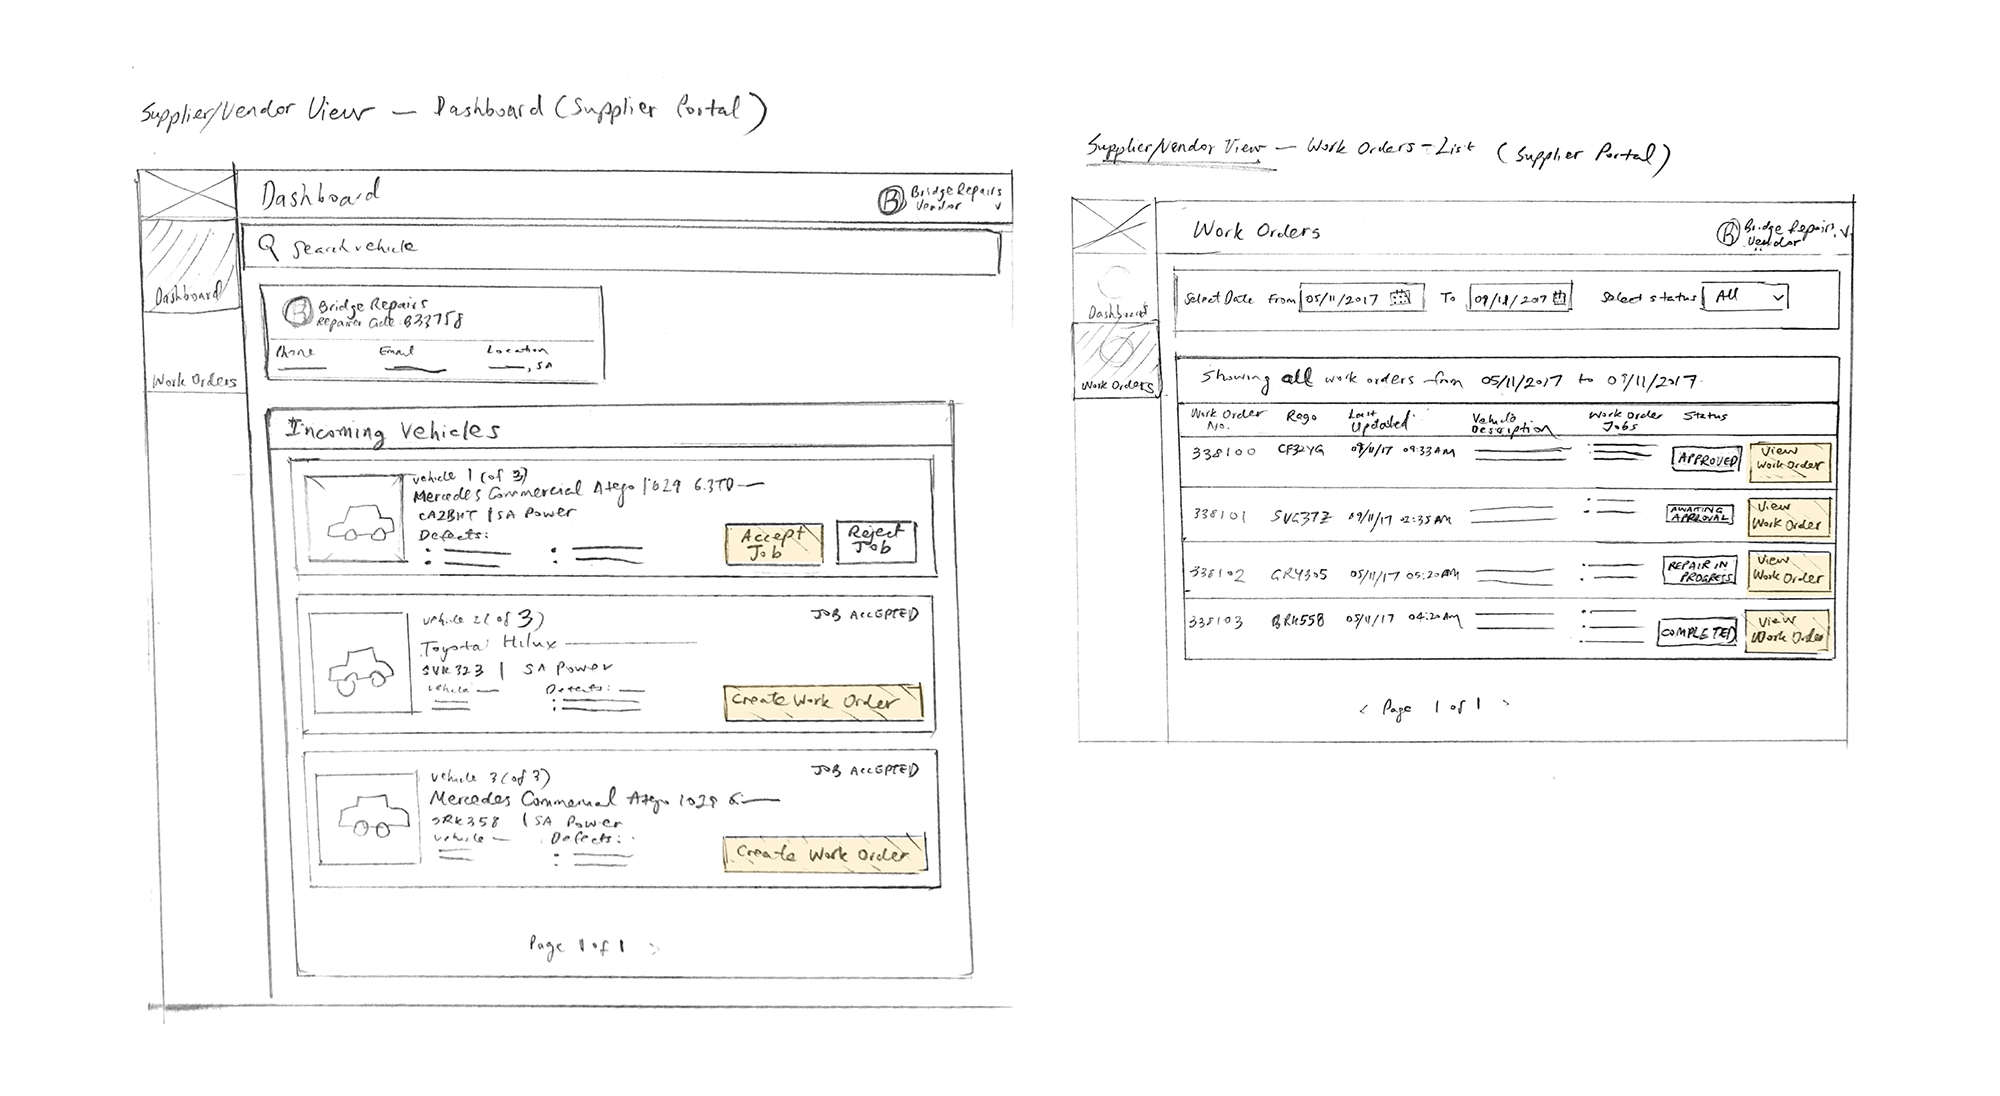 Supplier/Vendor View — Dashboard (Supplier Portal)
Dashboard
B Bridge Repairs
Vendor
Search vehicle
Dashboard
Work Orders
B Bridge Repairs
Repairer Code: B33758
Phone Email Location
, SA
Incoming Vehicles
Vehicle 1 (of 3)
Mercedes Commercial Atego 1029 6.3TD
CA2BHT | SA Power
Defects:
Accept
Job
Reject
Job
Vehicle 2 (of 3)
JOB ACCEPTED
Toyota Hilux
SVK323 | SA Power
Vehicle Defects:
Create Work Order
Vehicle 3 (of 3)
JOB ACCEPTED
Mercedes Commercial Atego 1029 6
SRK358 | SA Power
Vehicle Defects:
Create Work Order
Page 1 of 1 >
Supplier/Vendor View — Work Orders - List (Supplier Portal)
Work Orders
B Bridge Repairs
Vendor
Dashboard
Work Orders
Select Date From 05/11/2017 To Select status All
Showing all work orders from 05/11/2017 to 09/11/2017.
Work Order No. Rego Last Updated Vehicle Description Work Order Jobs Status
338100 CF32YG 09/11/17 09:33AM APPROVED View Work Order
338101 09/11/17 02:35AM AWAITING APPROVAL View Work Order
338102 05/11/17 05:20AM REPAIR IN PROGRESS View Work Order
338103 05/11/17 04:20AM COMPLETED View Work Order
< Page 1 of 1 >